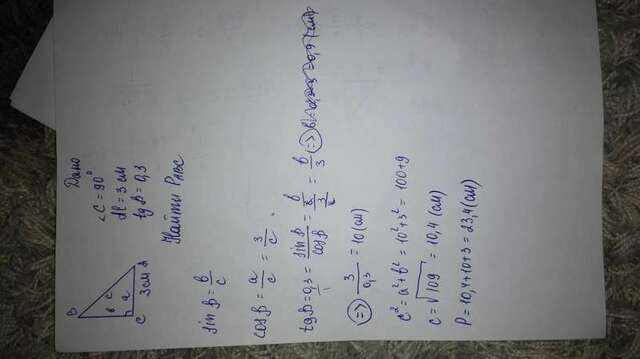 Дано
∠C = 90°
AC = 3 см
tg B = 0,3
Найти P ABC
B
в c
a
C 3см A
sin B = в/c
cos B = a/c = 3/c
tg B = 0,3 = sin B / cos B = (в/c) / (3/c) = в/3 (=>)
(=>) 3/0,3 = 10 (см)
c² = a² + в² = 10² + 3² = 100 + 9
c = √109 = 10,4 (см)
P = 10,4 + 10 + 3 = 23,4 (см)